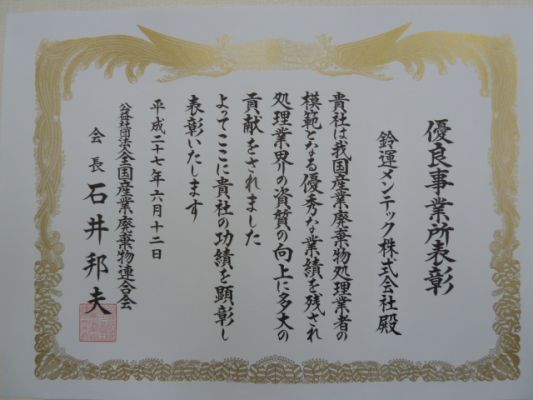 優良事業所表彰
鈴運メンテック株式会社殿
貴社は我国産業廃棄物処理業者の
模範となる優秀な業績を残され
処理業界の資質の向上に多大の
貢献をされました
よってここに貴社の功績を顕彰し
表彰いたします
平成二十七年六月十二日
公益社団法人全国産業廃棄物連合会
会長 石井邦夫